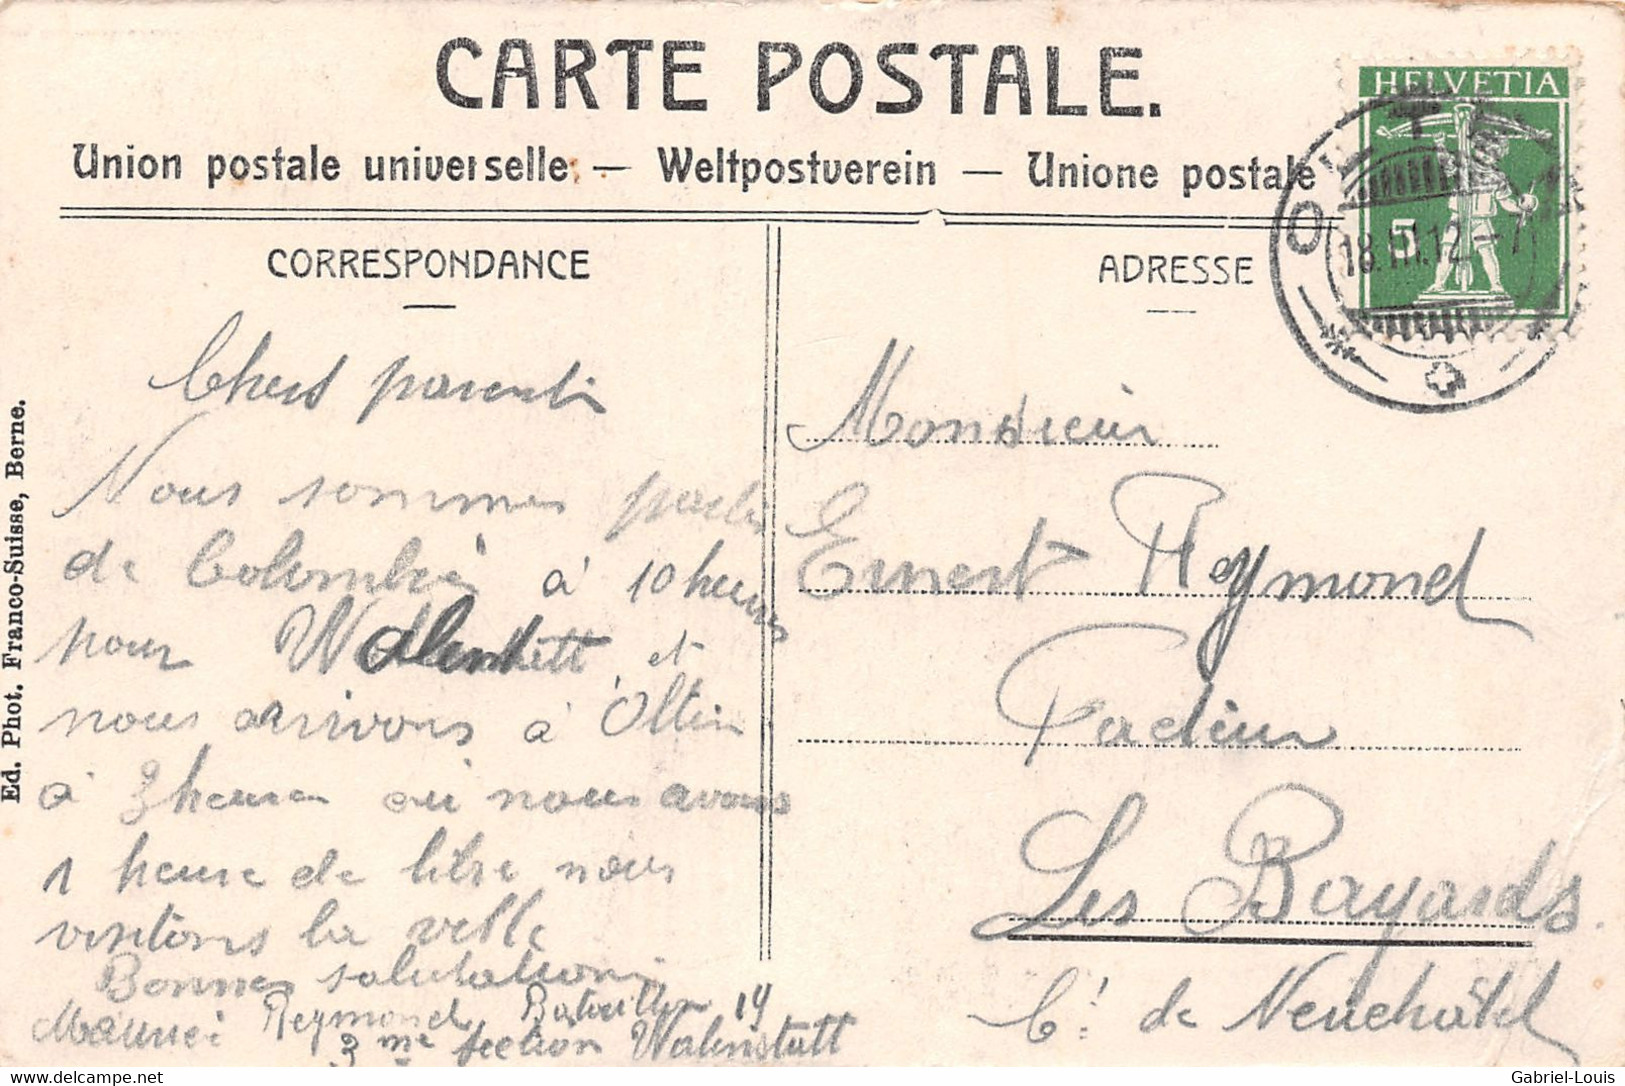 CARTE POSTALE.
Union postale universelle. — Weltpostverein — Unione postale
HELVETIA
5
OLT
18.III.12.-7
CORRESPONDANCE
Chers parents
Nous sommes partis
de Colombier à 10 heures
pour Walenstatt et
nous arrivons à Olten
à 3 heures où nous avons
1 heure de libre nous
visitons la ville
Bonnes salutations
Maurice Reymond Bataillon 14
3me section Walenstatt
ADRESSE
Monsieur
Ernest Reymond
Facteur
Les Bayards
Ct. de Neuchâtel
Ed. Phot. Franco-Suisse, Berne.
delcampe.net
Gabriel-Louis